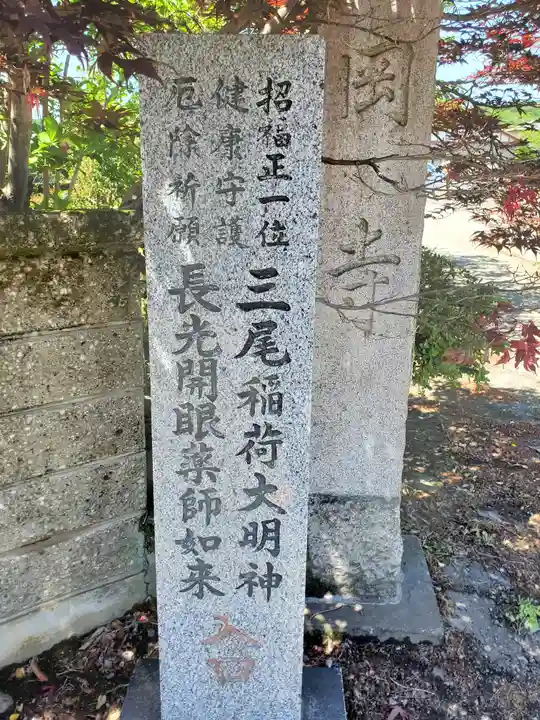 招福正一位
健康守護
三尾稲荷大明神
厄除祈願
長光開眼薬師如来
岡
寺